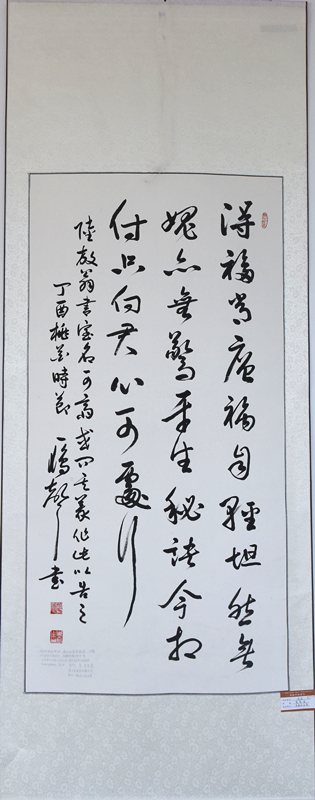 得福常廉禍自輕坦然無
愧亦無驚平生秘訣今相
付只向君心可處行
陸放翁書室名可齋或問其義作此以告之
丁酉桃花時節 書